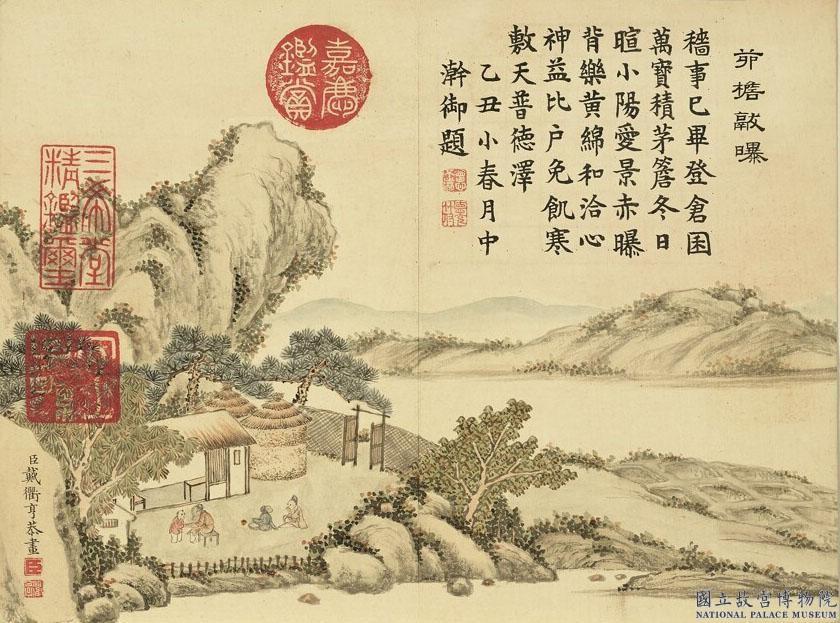 茆檐曝
穡事已畢登倉囷
萬寶積茅簷冬日
暄小陽愛景赤曝
背樂黃綿和洽心
神益比戶免飢寒
敷天普德澤
乙丑小春月中
澣御題
嘉慶
鑑賞
三希堂
精鑑璽
臣戴衢亨恭畫
臣
國立故宮博物院
NATIONAL PALACE MUSEUM